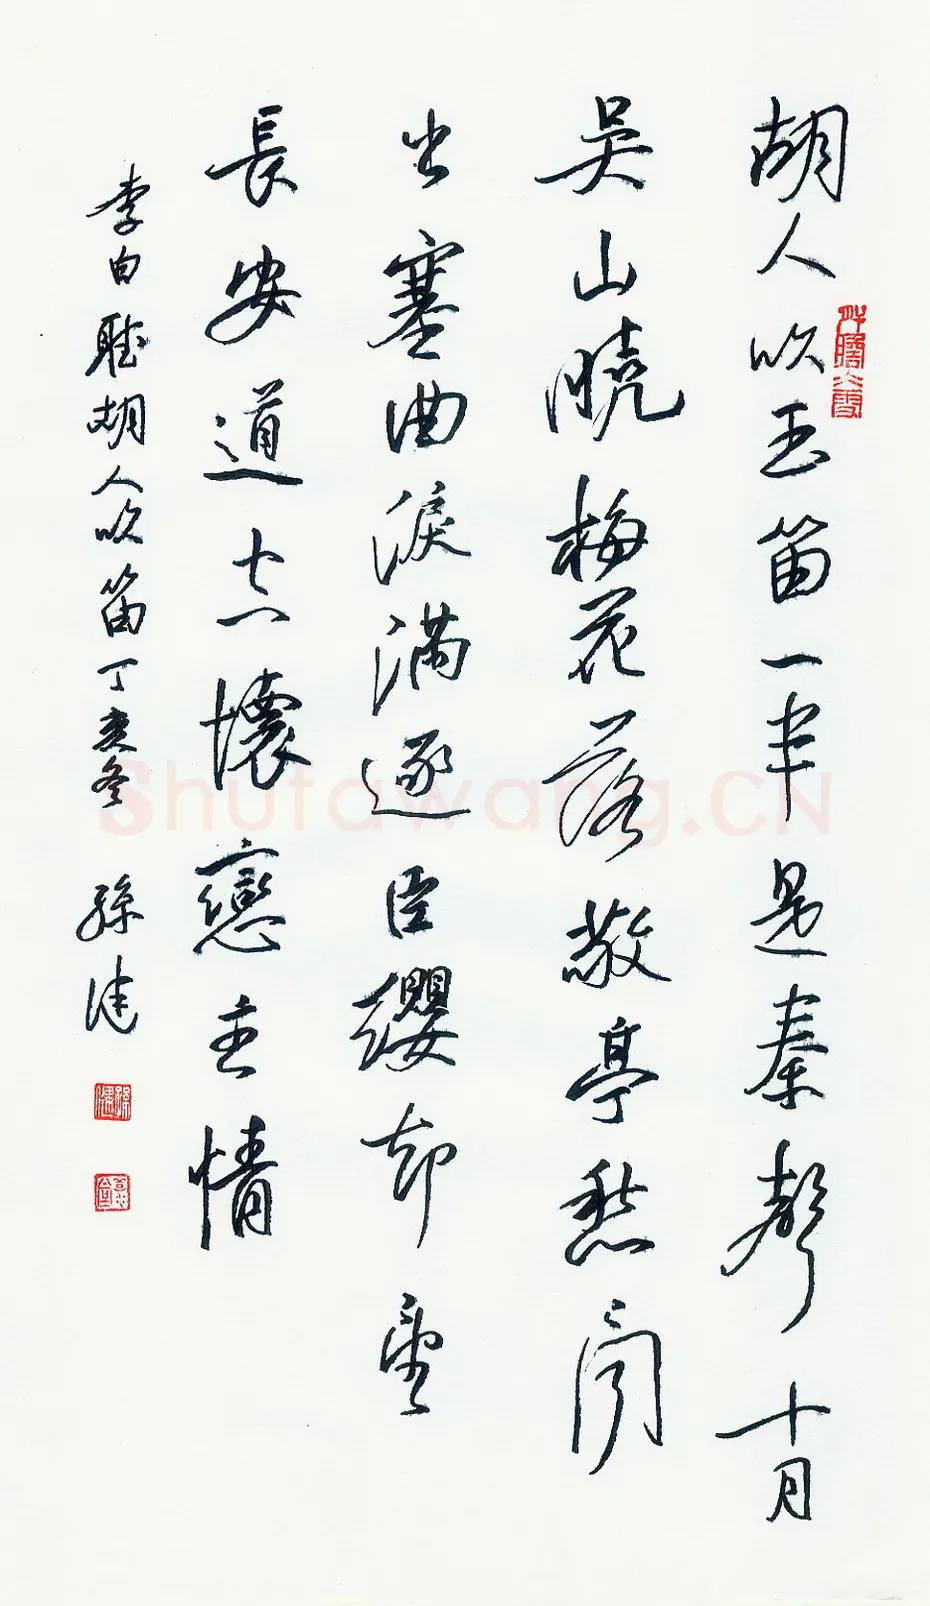 胡人吹玉笛一半是秦聲十月
吳山曉梅花落敬亭愁聞
出塞曲淚滿逐臣纓却望
長安道空懷戀主情
李白聽胡人吹笛丁亥冬 孫建
Shufawang.CN